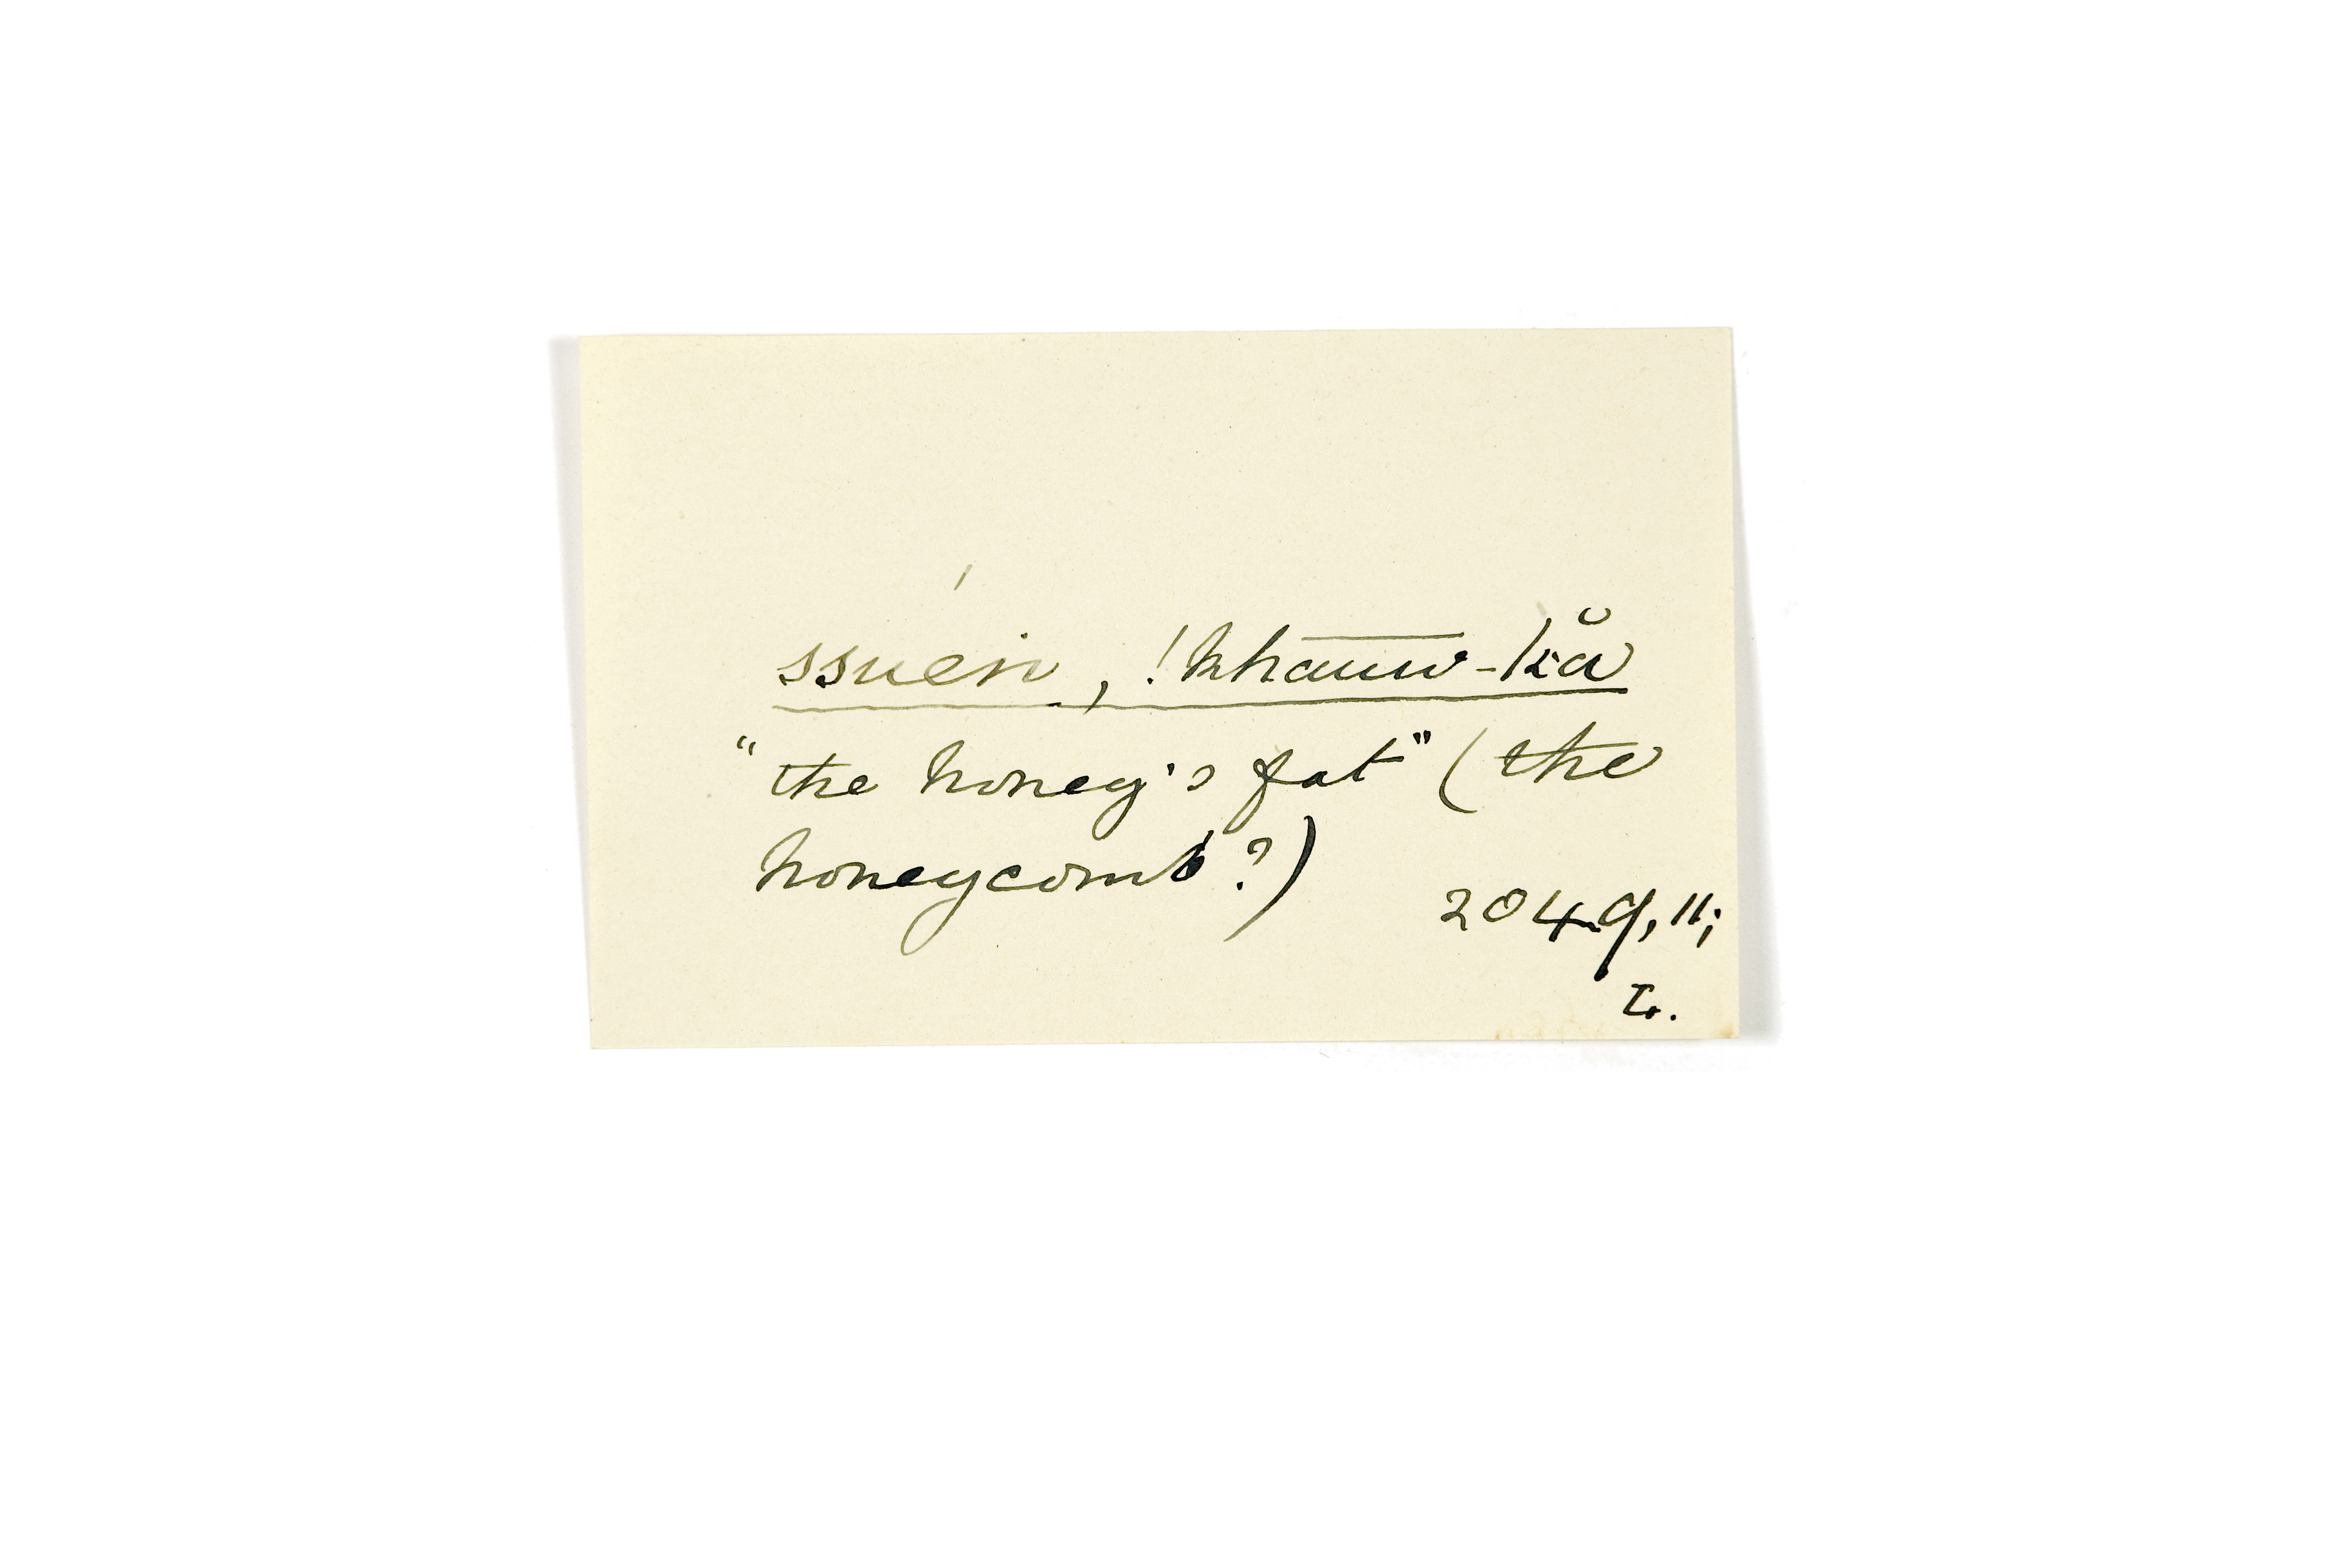 ssuėń, !khauw-kă
"the honey's fat" (the
honeycomb?)
204. 9, 11;
L.